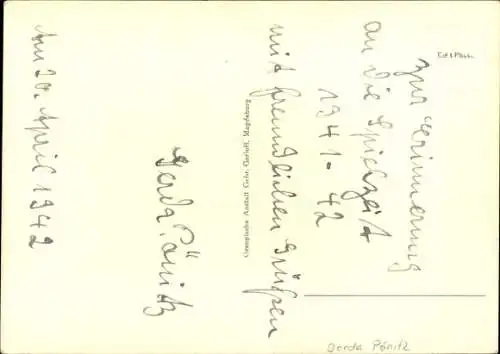 zur Erinnerung
an die Spielzeit
1941-42
mit freundlichen Grüßen
Gerda Pönitz
Am 20. April 1942
Graphische Anstalt Gebr. Garloff, Magdeburg
Gerda Pönitz